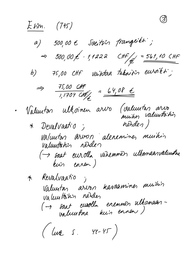 Esim. (745)
a) 500,00 € Sveitsin frangeiksi ;
⇒ 500,00 € · 1,1222 CHF/€ = 561,10 CHF
b) 75,00 CHF takaisin euroiksi ;
⇒ 75,00 CHF / CHF/€ = 64,08 €
• Valuutan ulkoinen arvo (valuutan arvo muihin valuuttoihin nähden)
* Devalvaatio ;
valuutan arvon aleneminen muihin
valuuttoihin nähden
(→ saat eurolla vähemmän ulkomaanvaluuttaa
kuin ennen)
* Revalvaatio ;
valuutan arvon kasvaminen muihin
valuuttoihin nähden
(→ saat eurolla enemmän ulkomaan-
valuuttaa kuin ennen)
(lue s. 44-45)